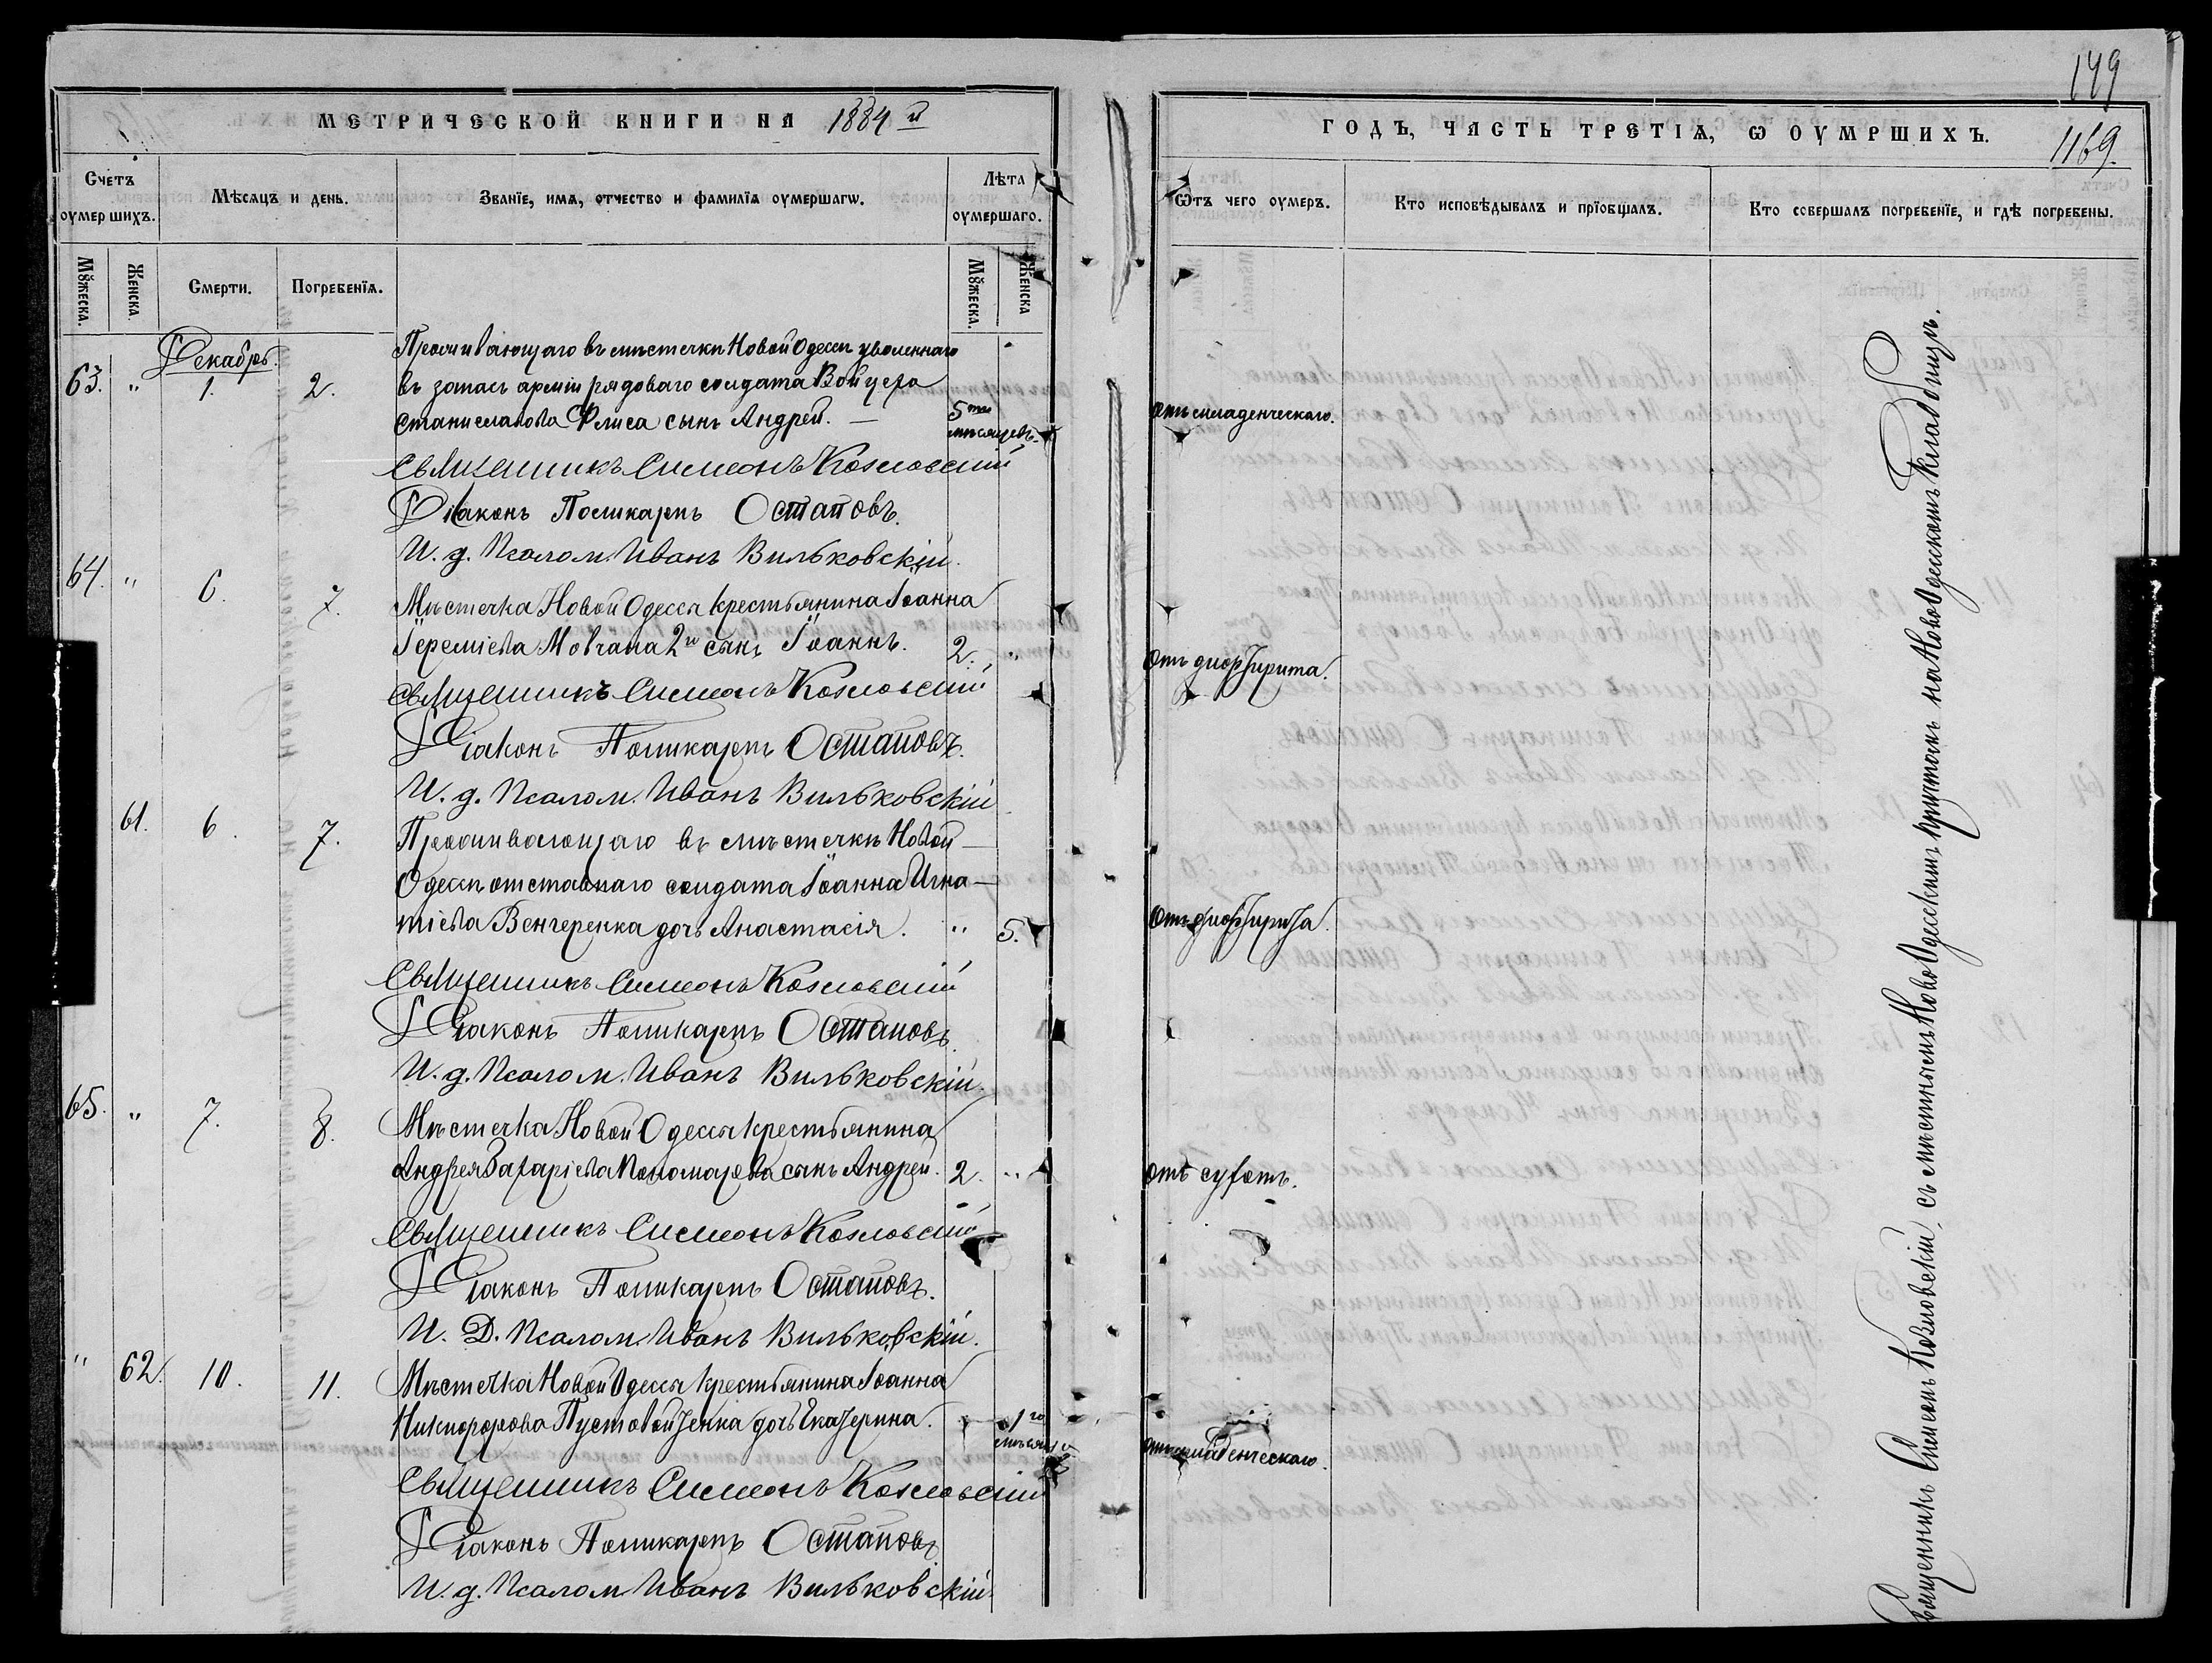 149
МЕТРИЧЕСКОЙ КНИГИ НА 1884 й
ГОДЪ, ЧАСТЬ ТРЕТІѦ, Ѡ ОУМРШИХЪ.
1169.
Счетъ оумершихъ.
Мѣсѧцъ и день.
Званїе, имѧ, отчество и фамилїѧ оумершагѡ.
Лѣта оумершаго.
Ѿтъ чего оумеръ.
Кто исповѣдывалъ и прїобщалъ.
Кто совершалъ погребенїе, и гдѣ погребены.
Мꙋжеска.
Женска.
Смерти.
Погребенїѧ.
Мꙋжеска.
Женска
Декабрь.
63. " 1. 2.
Проживающаго въ мѣстечкѣ Новой Одессѣ уволеннаго
въ запасъ арміи рядоваго солдата Войцеха
Станиславова Флиса сынъ Андрей. —
5ти мѣсяцевъ.
отъ младенческаго.
Священникъ Симеонъ Козловскій
Діаконъ Поликарпъ Остаповъ.
И. д. Псалом. Иванъ Вильковскій.
64. " 6. 7.
Мѣстечка Новой Одессы крестьянина Іоанна
Іереміева Мовчана 2го сынъ Іоаннъ. 2. "
Отъ дифтирита.
Священникъ Симеонъ Козловскій
Діаконъ Поликарпъ Остаповъ.
И. д. Псалом. Иванъ Вильковскій
61. 6. 7.
Проживающаго въ мѣстечкѣ Новой —
Одессѣ отставнаго солдата Іоанна Игна —
тіева Венгеренка дочь Анастасія. " 5.
Отъ дифтирита.
Священникъ Симеонъ Козловскій
Діаконъ Поликарпъ Остаповъ.
И. д. Псалом. Иванъ Вильковскій.
65. " 7. 8.
Мѣстечка Новой Одессы крестьянина
Андрея Захаріева Пономарева сынъ Андрей. 2. "
отъ сухотъ.
Священникъ Симеонъ Козловскій
Діаконъ Поликарпъ Остаповъ.
И. Д. Псалом. Иванъ Вильковскій.
" 62. 10. 11.
Мѣстечка Новой Одессы крестьянина Іоанна
Никифорова Пустовойтенка дочь Екатерина.
1го мѣсяца
отъ младенческаго.
Священникъ Симеонъ Козловскій
Діаконъ Поликарпъ Остаповъ.
И. д. Псалом. Иванъ Вильковскій.
Священникъ Симеонъ Козловскій, съ мѣстнымъ НовоОдесскимъ причтомъ на НовоОдесскомъ кладбищѣ.